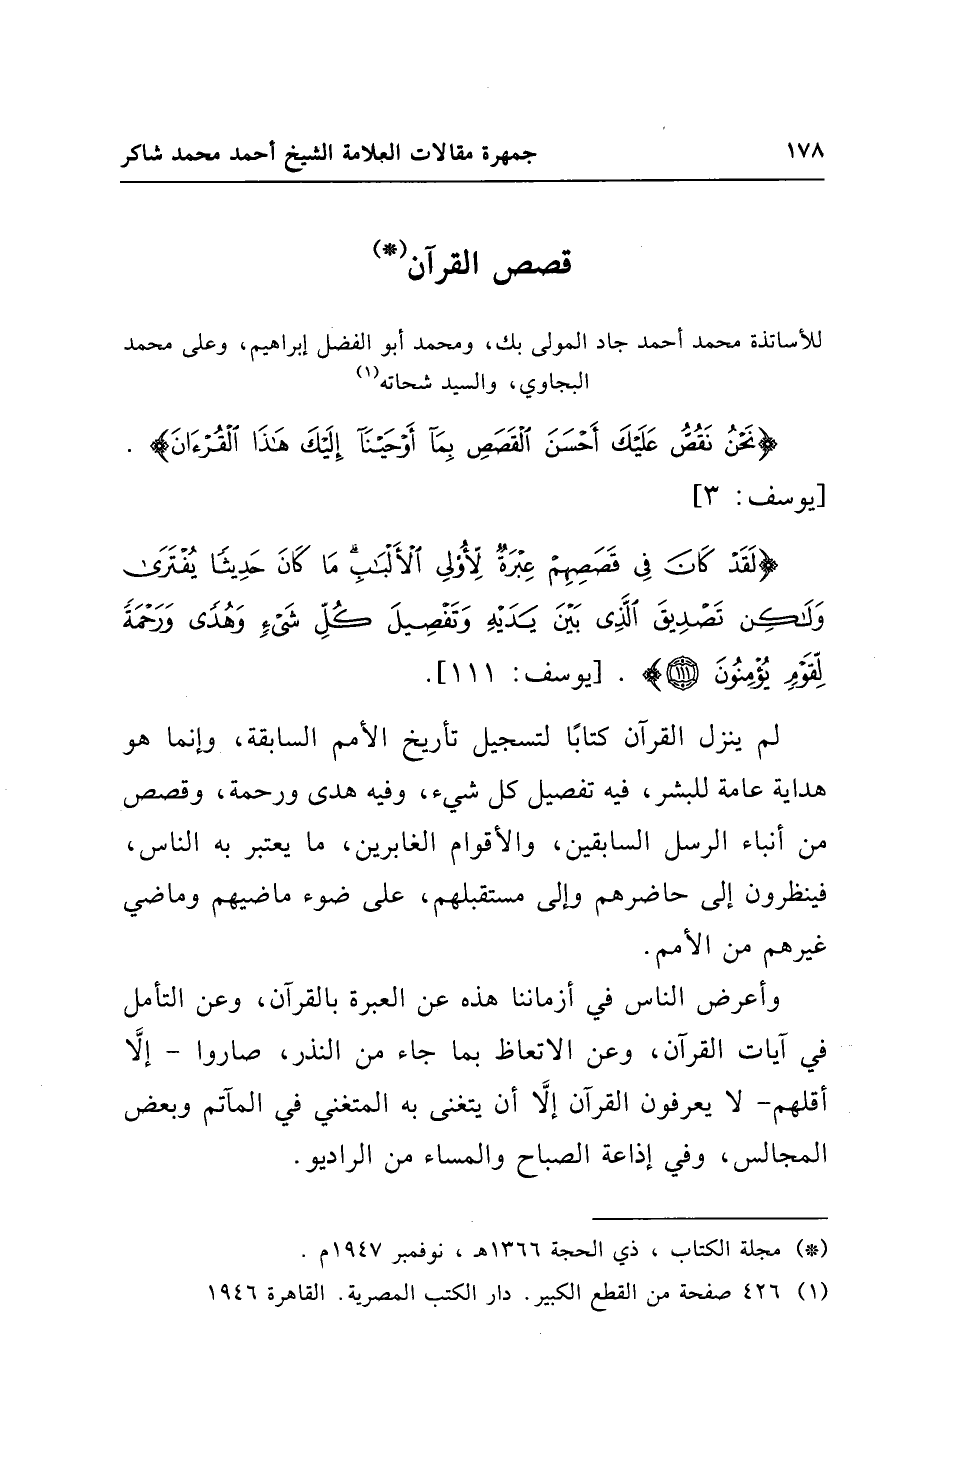 ١٧٨ جمهرة مقالات العلامة الشيخ أحمد محمد شاكر
قصص القرآن(*)
للأساتذة محمد أحمد جاد المولى بك، ومحمد أبو الفضل إبراهيم، وعلى محمد
البجاوي، والسيد شحاته(١)
﴿نَحْنُ نَقُصُّ عَلَيْكَ أَحْسَنَ ٱلْقَصَصِ بِمَآ أَوْحَيْنَآ إِلَيْكَ هَٰذَا ٱلْقُرْءَانَ﴾ .
[يوسف: ٣]
﴿لَقَدْ كَانَ فِى قَصَصِهِمْ عِبْرَةٌ لِّأُو۟لِى ٱلْأَلْبَٰبِ ۗ مَا كَانَ حَدِيثًا يُفْتَرَىٰ
وَلَٰكِن تَصْدِيقَ ٱلَّذِى بَيْنَ يَدَيْهِ وَتَفْصِيلَ كُلِّ شَىْءٍ وَهُدًى وَرَحْمَةً
لِّقَوْمٍ يُؤْمِنُونَ ١١١﴾ . [يوسف: ١١١].
لم ينزل القرآن كتابًا لتسجيل تأريخ الأمم السابقة، وإنما هو
هداية عامة للبشر، فيه تفصيل كل شيء، وفيه هدى ورحمة، وقصص
من أنباء الرسل السابقين، والأقوام الغابرين، ما يعتبر به الناس،
فينظرون إلى حاضرهم وإلى مستقبلهم، على ضوء ماضيهم وماضي
غيرهم من الأمم.
وأعرض الناس في أزماننا هذه عن العبرة بالقرآن، وعن التأمل
في آيات القرآن، وعن الاتعاظ بما جاء من النذر، صاروا - إلَّا
أقلهم- لا يعرفون القرآن إلَّا أن يتغنى به المتغني في المآتم وبعض
المجالس، وفي إذاعة الصباح والمساء من الراديو.
(*) مجلة الكتاب ، ذي الحجة ١٣٦٦هـ ، نوفمبر ١٩٤٧م .
(١) ٤٢٦ صفحة من القطع الكبير. دار الكتب المصرية. القاهرة ١٩٤٦